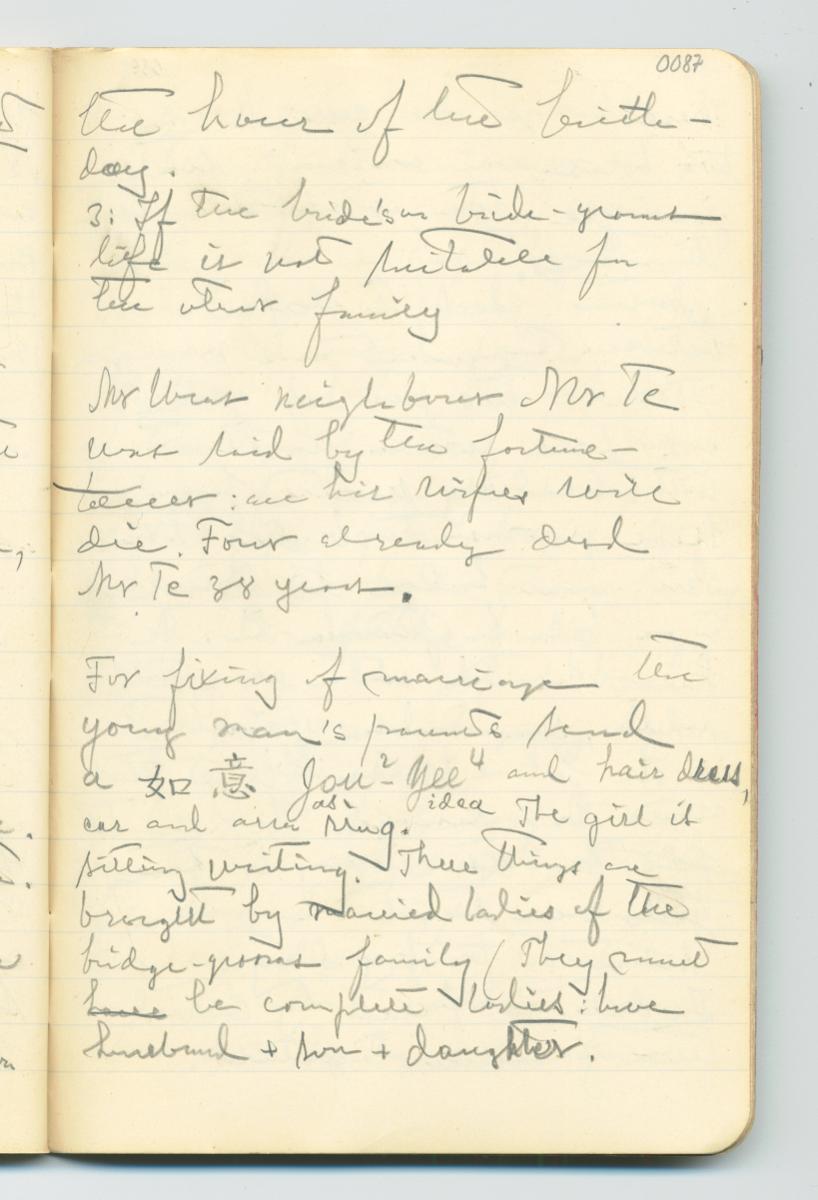 0087
the hour of the birth-
day.
3: If the bride's or bride-grooms
life is not suitable for
the other family
Mr West neighbour Mr Te
was said by the fortune-
teller: all his wifes will
die. Four already dead
Mr Te 38 years.
For fixing of marriage the
young man's parents send
a 如意 Jou²-Yee⁴ and hair dress,
as idea
ear and arm ring. The girl is
sitting waiting. These things are
brought by married ladies of the
bridge-grooms family (They must
have be complete ladies: have
husband + son + daughter.